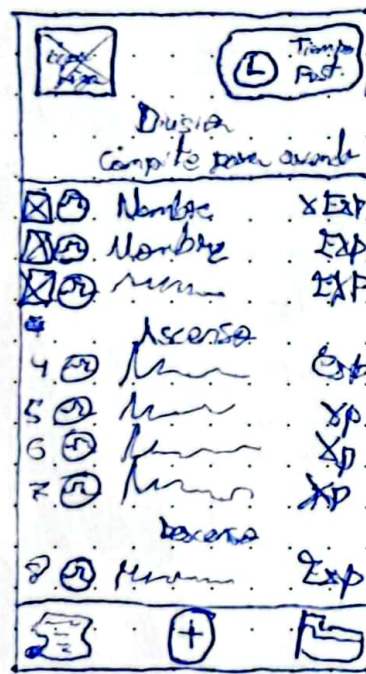 Tiempo
División
Compite para
Nombre x Exp
Nombre Exp
Exp
Ascenso
4 Exp
5 Xp
6 Xp
7 Xp
Descenso
8 Exp